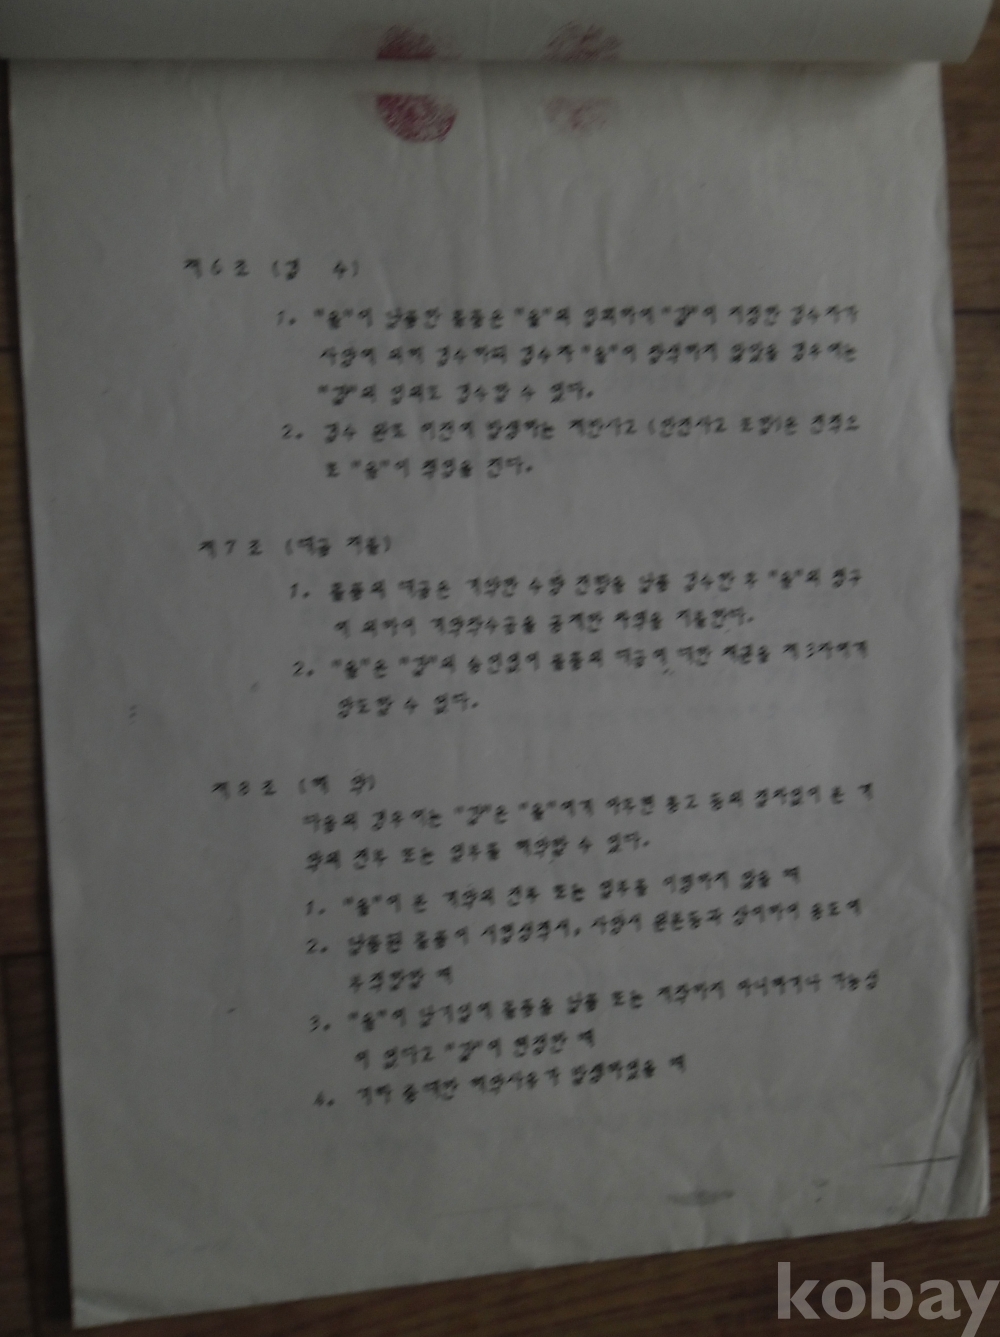 제 6 조 (검 수)
1. "을"이 납품한 물품은 "을"의 입회하에 "갑"이 지정한 검수자가
사양에 의해 검수하되 검수자 "을"이 참석하지 않았을 경우에는
"갑"의 임의로 검수할 수 있다.
2. 검수 완료 이전에 발생하는 제반사고 (안전사고 포함)은 전적으
로 "을"이 책임을 진다.
제 7 조 (대금 지불)
1. 물품의 대금은 계약한 수량 전량을 납품 검수한 후 "을"의 청구
에 의하여 계약착수금을 공제한 차액을 지불한다.
2. "을"은 "갑"의 승인없이 물품의 대금에 대한 채권을 제3자에게
양도할 수 없다.
제 8 조 (해 약)
다음의 경우에는 "갑"은 "을"에게 하도 통고 등의 절차없이 본 계
약의 전부 또는 일부를 해약할 수 있다.
1. "을"이 본 계약의 전부 또는 일부를 이행하지 않을 때
2. 납품된 물품이 시험성적서, 사양서 등과 상이하여 용도에
부적합할 때
3. "을"이 납기일에 물품을 납품 또는 제작하지 아니하거나 가능성
이 없다고 "갑"이 인정한 때
4. 기타 중대한 해약사유가 발생하였을 때
kobay